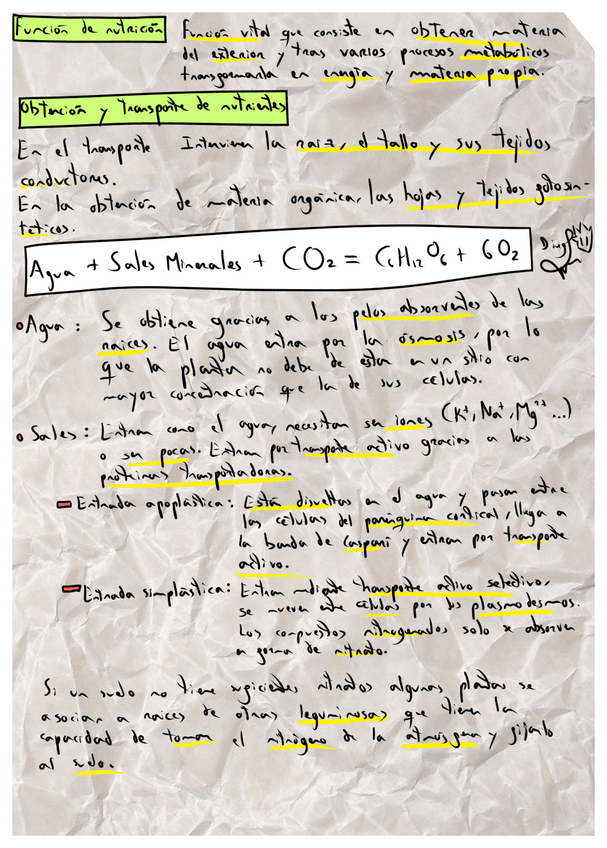 Función de nutrición
Función vital que consiste en obtener materia
del exterior y tras varios procesos metabólicos
transformarla en energía y materia propia.
Obtención y transporte de nutrientes
En el transporte Intervienen la raíz, el tallo y sus tejidos
conductores.
En la obtención de materia orgánica, las hojas y tejidos fotosin-
téticos.
Agua + Sales Minerales + CO₂ = C₆H₁₂O₆ + 6O₂
Agua: Se obtiene gracias a los pelos absorventes de las
raíces. El agua entra por la ósmosis, por lo
que la planta no debe de estar en un sitio con
mayor concentración que la de sus células.
Sales: Entran como el agua, necesitan ser iones (K⁺, Na⁺, Mg⁺⁺...)
o ser pocas. Entran por transporte activo gracias a las
proteínas transportadoras.
Entrada apoplástica: Están disueltas en el agua y pasan entre
las células del parénquima cortical, llega a
la banda de Caspari y entran por transporte
activo.
Entrada simplástica: Entran mediante transporte activo selectivo,
se mueven entre células por los plasmodesmos.
Los compuestos nitrogenados solo se absorven
a forma de nitrato.
Si un suelo no tiene suficientes nitratos algunas plantas se
asocian a raíces de otras leguminosas que tienen la
capacidad de tomar el nitrógeno de la atmósfera y fijarlo
al suelo.